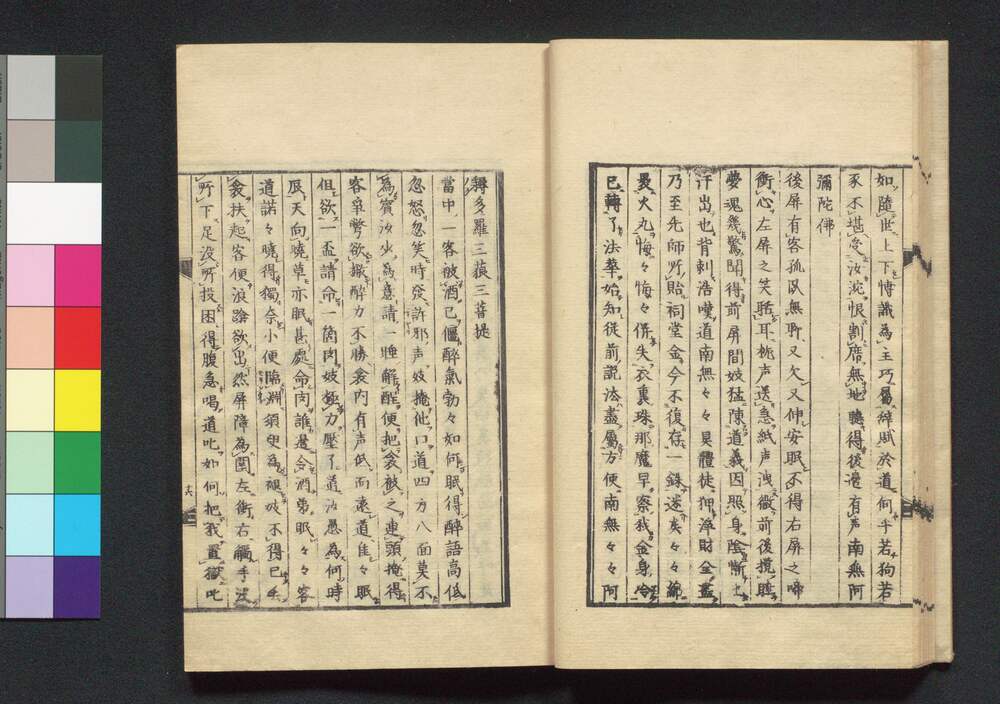 如隨世上下博識為主巧屬辭賦於道何乎若狗若
豕不堪受汝沱恨割席無地聽得後邊有声南無阿
彌陀佛
後屏有客孤臥無聊又欠又伸安眠不得右屏之啼
衝心左屏之笑聒耳枕声送急紙声洩微前後攪睡
夢魂幾驚聞得前屏間妓猛陳道義因照身陰慚土
汗出也背刺浩嘆道南無々々異體徒狎浄財全盡
乃至先師所貽祠堂金今不復存一錢迷矣々々綿
曼火丸悔々悔々併失衣裏珠那魔早察我金身冷
已轉了法華始知從前説法盡屬方便南無々々阿
耨多羅三藐三菩提
當中一客被酒已偃醉氣勃々如何眠得醉語高低
忽怒忽笑時發詐邪声妓掩他口道四方八面莫不
為賓汝少為意請一睡解酲便把衾被之連頭掩得
客氣弊欲撒醉力不勝衾内有声低而遠道佳々眠
但欲一盃請命一箇肉妓極力壓了道汝愚為何時
辰天向曉草亦眠甚處命肉誰邊命酒弟眠々々客
道諾々曉得獨奈小便臨溺須臾為頑皮不得已手
衾扶起客便浪蹌欲出然屏障為圍左衝右觸手没
所下足没所投困得腹急喝道叱如何把我置獄叱
十六